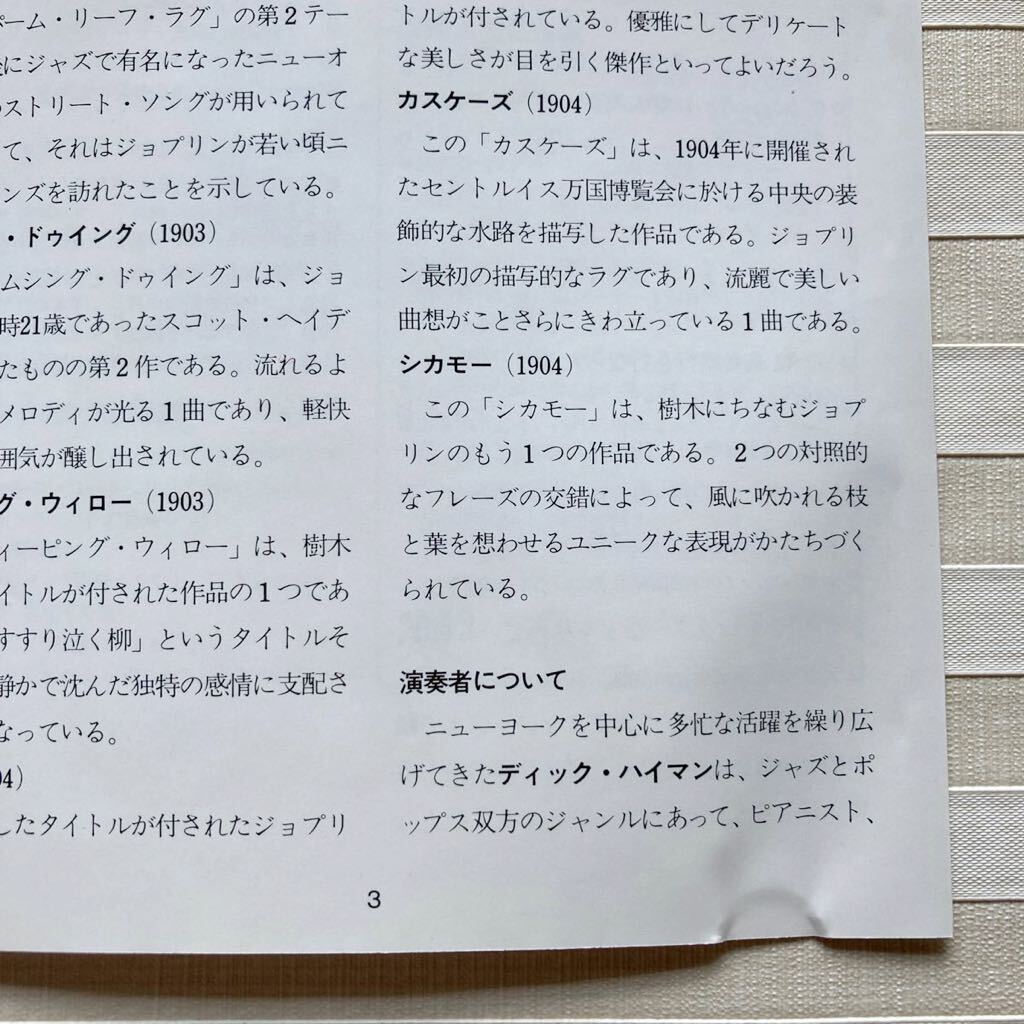 パーム・リーフ・ラグ」の第２テー
にジャズで有名になったニューオ
のストリート・ソングが用いられて
て、それはジョプリンが若い頃ニ
ンズを訪れたことを示している。
・ドゥイング（1903）
ムシング・ドゥイング」は、ジョ
時21歳であったスコット・ヘイデ
たものの第２作である。流れるよ
メロディが光る１曲であり、軽快
囲気が醸し出されている。
グ・ウィロー（1903）
ィーピング・ウィロー」は、樹木
イトルが付された作品の１つであ
すすり泣く柳」というタイトルそ
静かで沈んだ独特の感情に支配さ
なっている。
04）
したタイトルが付されたジョプリ
トルが付されている。優雅にしてデリケート
な美しさが目を引く傑作といってよいだろう。
カスケーズ（1904）
この「カスケーズ」は、1904年に開催され
たセントルイス万国博覧会に於ける中央の装
飾的な水路を描写した作品である。ジョプリ
ン最初の描写的なラグであり、流麗で美しい
曲想がことさらにきわ立っている１曲である。
シカモー（1904）
この「シカモー」は、樹木にちなむジョプ
リンのもう１つの作品である。２つの対照的
なフレーズの交錯によって、風に吹かれる枝
と葉を想わせるユニークな表現がかたちづく
られている。
演奏者について
ニューヨークを中心に多忙な活躍を繰り広
げてきたディック・ハイマンは、ジャズとポ
ップス双方のジャンルにあって、ピアニスト、
3